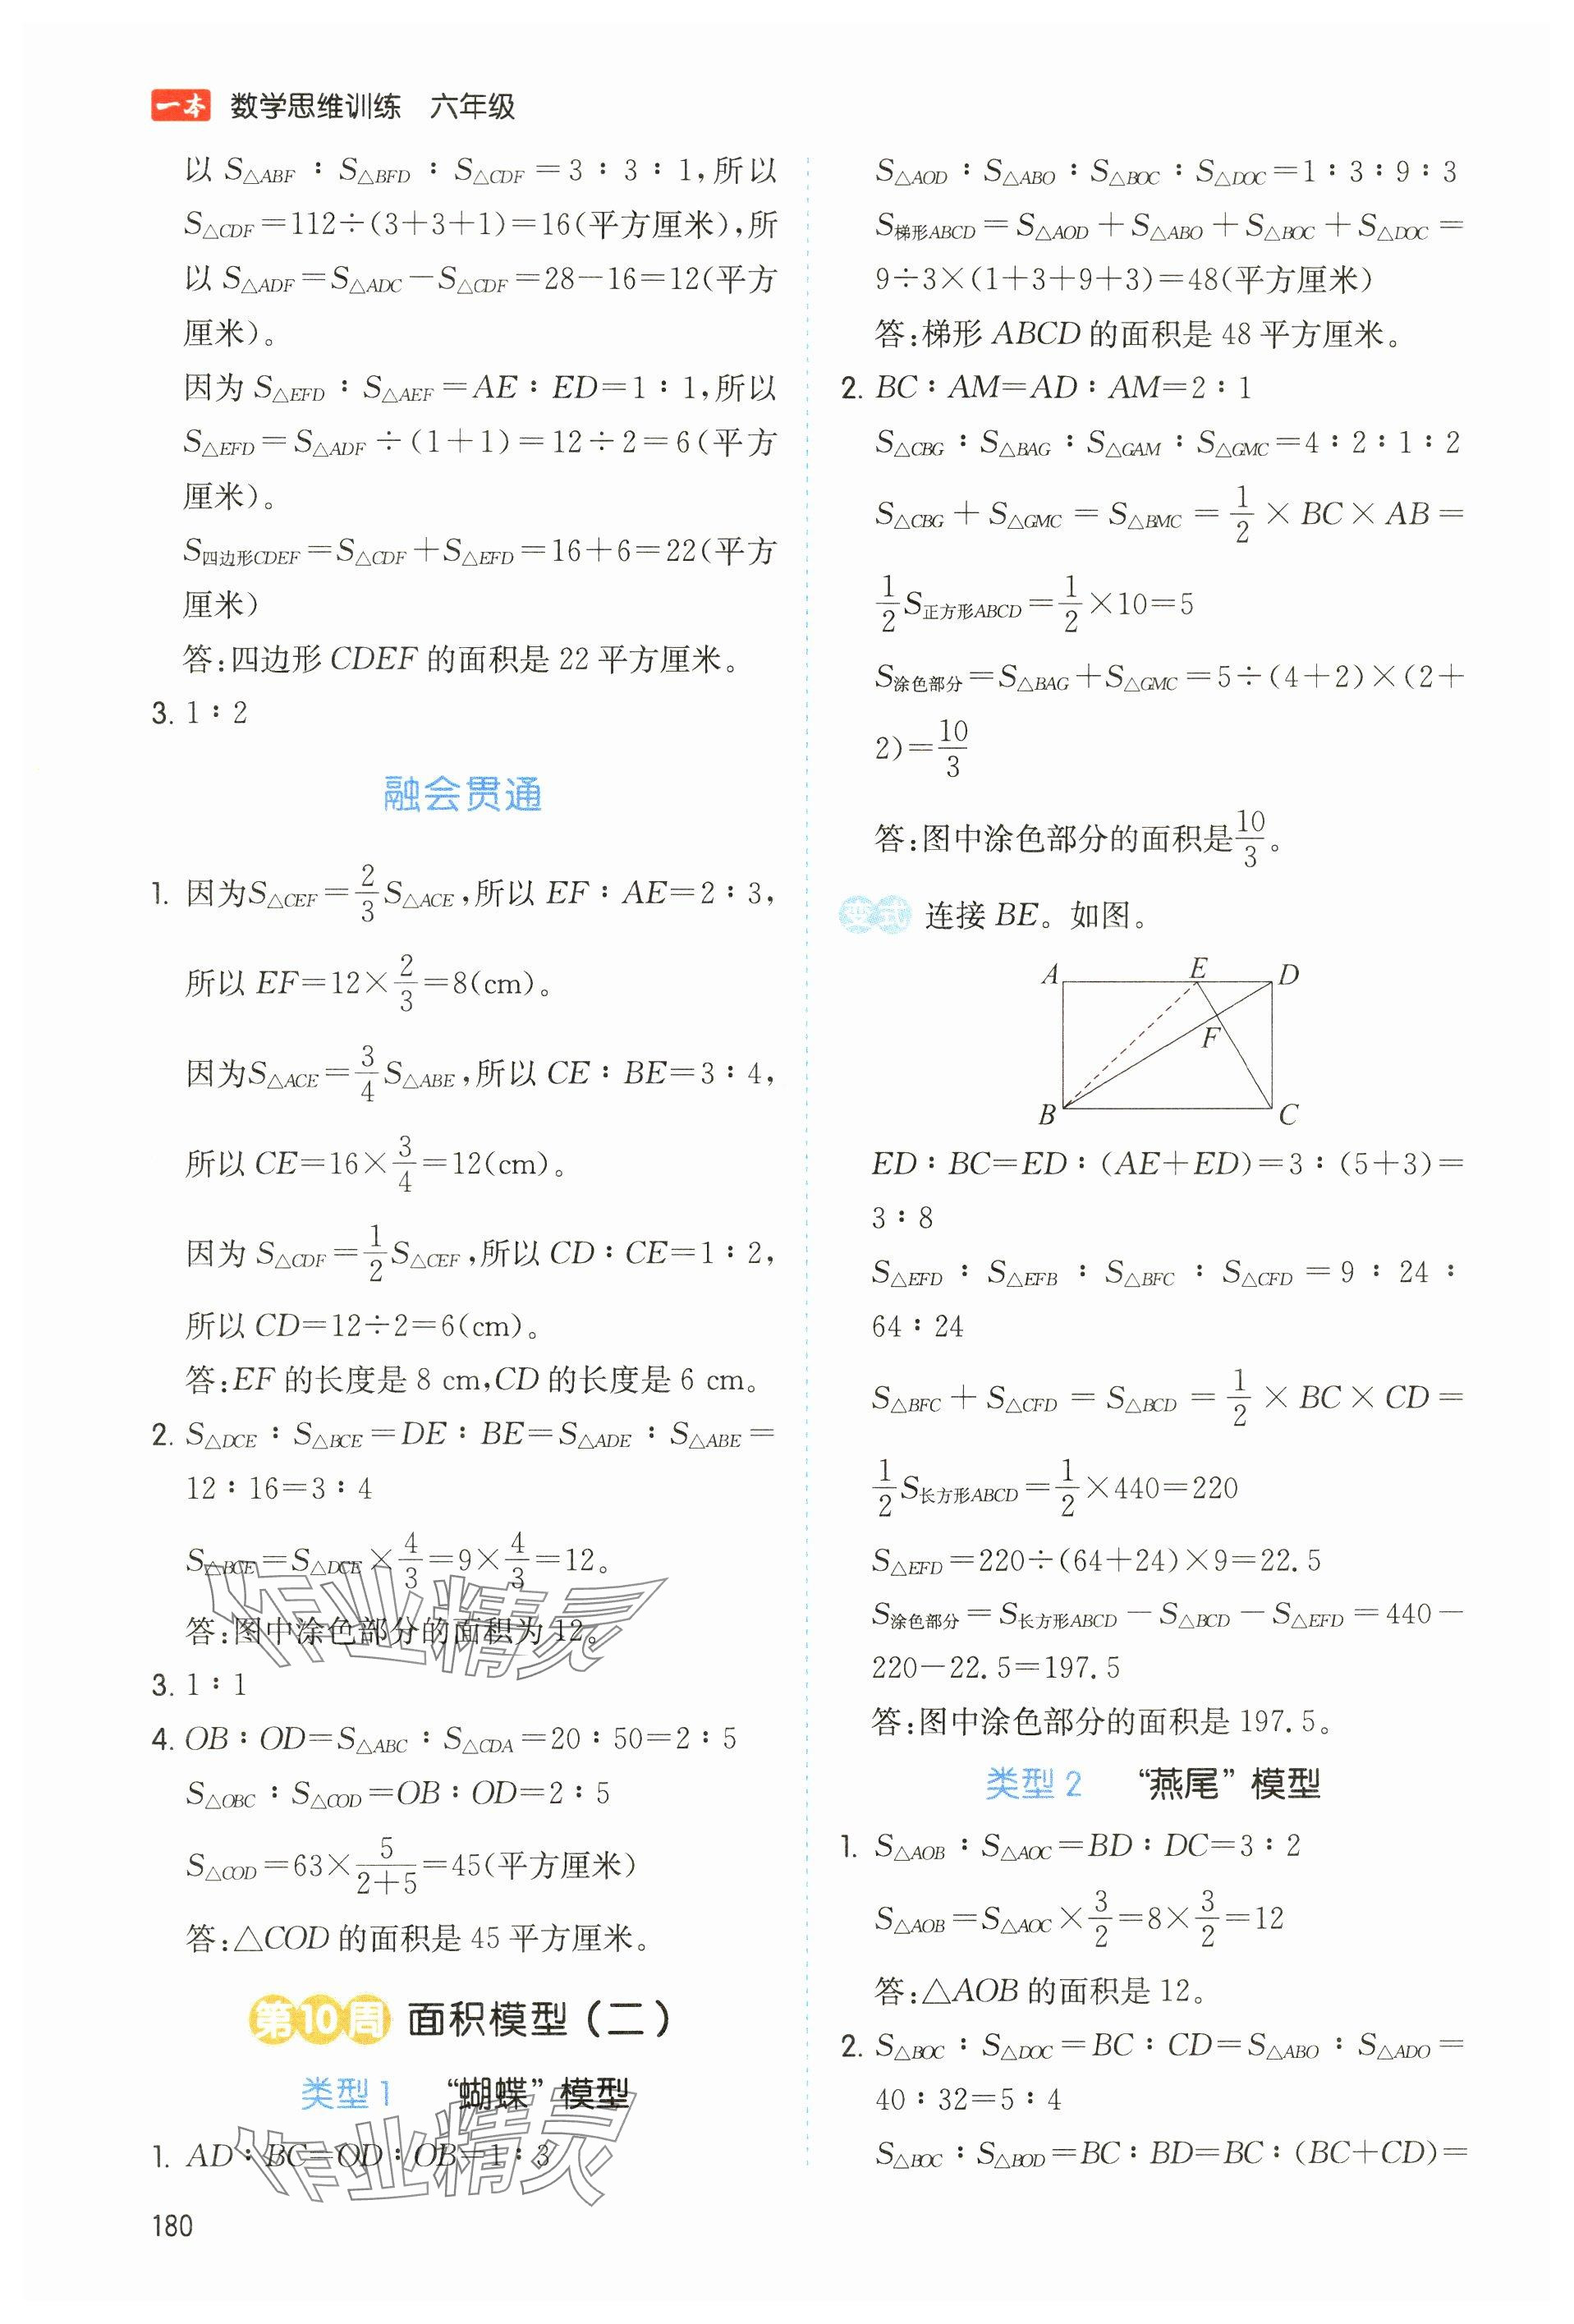 一本 数学思维训练 六年级
以 S△ABF : S△BFD : S△CDF=3 : 3 : 1,所以
S△CDF=112÷(3+3+1)=16(平方厘米),所
以 S△ADF=S△ADC-S△CDF=28-16=12(平方
厘米)。
因为 S△EFD : S△AEF=AE : ED=1 : 1,所以
S△EFD=S△ADF÷(1+1)=12÷2=6(平方
厘米)。
S四边形CDEF=S△CDF+S△EFD=16+6=22(平方
厘米)
答:四边形 CDEF 的面积是 22 平方厘米。
3. 1 : 2
融会贯通
1. 因为S△CEF=2/3 S△ACE,所以 EF : AE=2 : 3,
所以 EF=12×2/3=8(cm)。
因为S△ACE=3/4 S△ABE,所以 CE : BE=3 : 4,
所以 CE=16×3/4=12(cm)。
因为 S△CDF=1/2 S△CEF,所以 CD : CE=1 : 2,
所以 CD=12÷2=6(cm)。
答:EF 的长度是 8 cm,CD 的长度是 6 cm。
2. S△DCE : S△BCE=DE : BE=S△ADE : S△ABE=
12 : 16=3 : 4
S△BCE=S△DCE×4/3=9×4/3=12。
答:图中涂色部分的面积为 12。
3. 1 : 1
4. OB : OD=S△ABC : S△CDA=20 : 50=2 : 5
S△OBC : S△COD=OB : OD=2 : 5
S△COD=63×5/(2+5)=45(平方厘米)
答:△COD 的面积是 45 平方厘米。
第10周 面积模型(二)
类型1 “蝴蝶”模型
1. AD : BC=OD : OB=1 : 3
180
S△AOD : S△ABO : S△BOC : S△DOC=1 : 3 : 9 : 3
S梯形ABCD=S△AOD+S△ABO+S△BOC+S△DOC=
9÷3×(1+3+9+3)=48(平方厘米)
答:梯形 ABCD 的面积是 48 平方厘米。
2. BC : AM=AD : AM=2 : 1
S△CBG : S△BAG : S△GAM : S△GMC=4 : 2 : 1 : 2
S△CBG+S△GMC=S△BMC=1/2×BC×AB=
1/2 S正方形ABCD=1/2×10=5
S涂色部分=S△BAG+S△GMC=5÷(4+2)×(2+
2)=10/3
答:图中涂色部分的面积是10/3。
变式 连接 BE。如图。
A E D
F
B C
ED : BC=ED : (AE+ED)=3 : (5+3)=
3 : 8
S△EFD : S△EFB : S△BFC : S△CFD=9 : 24 :
64 : 24
S△BFC+S△CFD=S△BCD=1/2×BC×CD=
1/2 S长方形ABCD=1/2×440=220
S△EFD=220÷(64+24)×9=22.5
S涂色部分=S长方形ABCD-S△BCD-S△EFD=440-
220-22.5=197.5
答:图中涂色部分的面积是 197.5。
类型2 “燕尾”模型
1. S△AOB : S△AOC=BD : DC=3 : 2
S△AOB=S△AOC×3/2=8×3/2=12
答:△AOB 的面积是 12。
2. S△BOC : S△DOC=BC : CD=S△ABO : S△ADO=
40 : 32=5 : 4
S△BOC : S△BOD=BC : BD=BC : (BC+CD)=
作业精灵
作业精灵